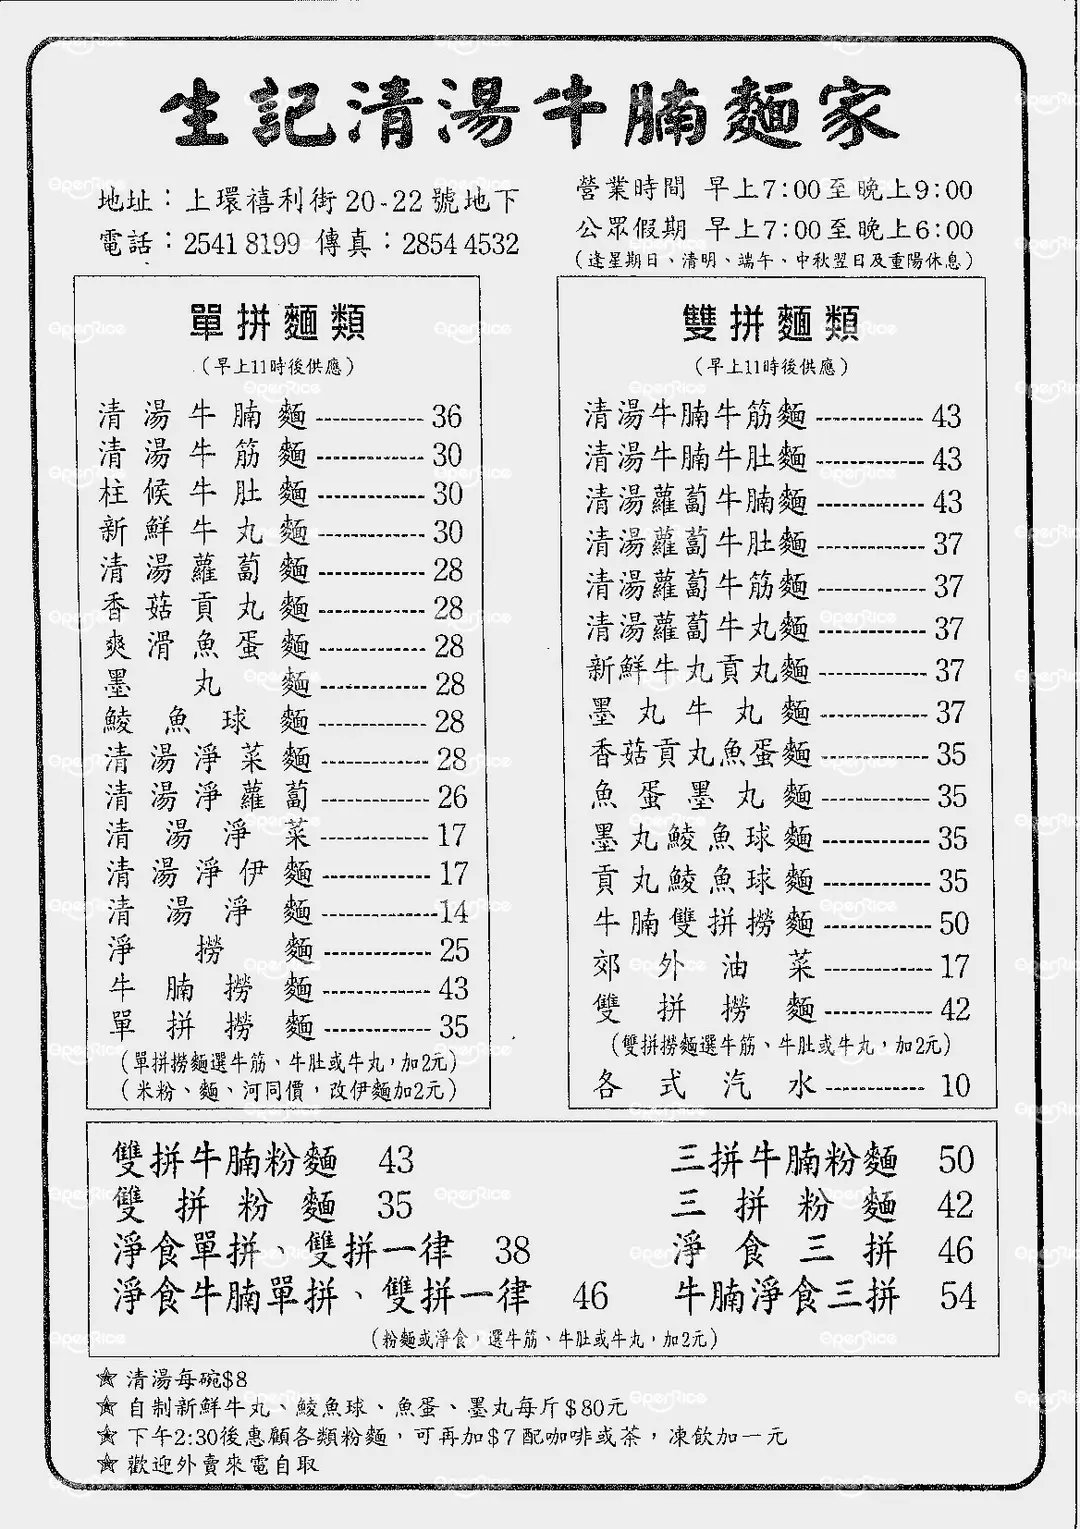 生記清湯牛腩麵家
地址：上環禧利街20-22號地下
電話：2541 8199 傳真：2854 4532
營業時間 早上7:00至晚上9:00
公眾假期 早上7:00至晚上6:00
（逢星期日、清明、端午、中秋翌日及重陽休息）
單拼麵類
（早上11時後供應）
清湯牛腩麵 ------------ 36
清湯牛筋麵 ------------ 30
柱候牛肚麵 ------------ 30
新鮮牛丸麵 ------------ 30
清湯蘿蔔麵 ------------ 28
香菇貢丸麵 ------------ 28
爽滑魚蛋麵 ------------ 28
墨丸麵 ------------ 28
鯪魚球麵 ------------ 28
清湯淨菜麵 ------------ 28
清湯淨蘿蔔 ------------ 26
清湯淨菜 ------------ 17
清湯淨伊麵 ------------ 17
清湯淨麵 ------------ 14
淨撈麵 ------------ 25
牛腩撈麵 ------------ 43
單拼撈麵 ------------ 35
（單拼撈麵選牛筋、牛肚或牛丸，加2元）
（米粉、麵、河同價，改伊麵加2元）
雙拼麵類
（早上11時後供應）
清湯牛腩牛筋麵 ------------ 43
清湯牛腩牛肚麵 ------------ 43
清湯蘿蔔牛腩麵 ------------ 43
清湯蘿蔔牛肚麵 ------------ 37
清湯蘿蔔牛筋麵 ------------ 37
清湯蘿蔔牛丸麵 ------------ 37
新鮮牛丸貢丸麵 ------------ 37
墨丸牛丸麵 ------------ 37
香菇貢丸魚蛋麵 ------------ 35
魚蛋墨丸麵 ------------ 35
墨丸鯪魚球麵 ------------ 35
貢丸鯪魚球麵 ------------ 35
牛腩雙拼撈麵 ------------ 50
郊外油菜 ------------ 17
雙拼撈麵 ------------ 42
（雙拼撈麵選牛筋、牛肚或牛丸，加2元）
各式汽水 ------------ 10
雙拼牛腩粉麵 43
雙拼粉麵 35
淨食單拼、雙拼一律 38
淨食牛腩單拼、雙拼一律 46
三拼牛腩粉麵 50
三拼粉麵 42
淨食三拼 46
牛腩淨食三拼 54
（粉麵或淨食，選牛筋、牛肚或牛丸，加2元）
☆ 清湯每碗$8
☆ 自制新鮮牛丸、鯪魚球、魚蛋、墨丸每斤$80元
☆ 下午2:30後惠顧各類粉麵，可再加$7配咖啡或茶，凍飲加一元
☆ 歡迎外賣來電自取
OpenRice